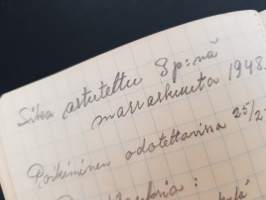 Sika astutettu 8 p:nä
marraskuuta 1948.
Poikiminen odotettavissa 25/2-